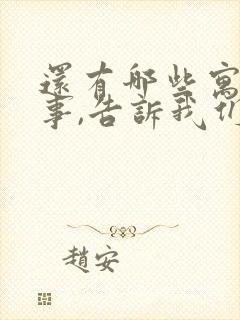 還有那些寓
事,告訴我们
趙安